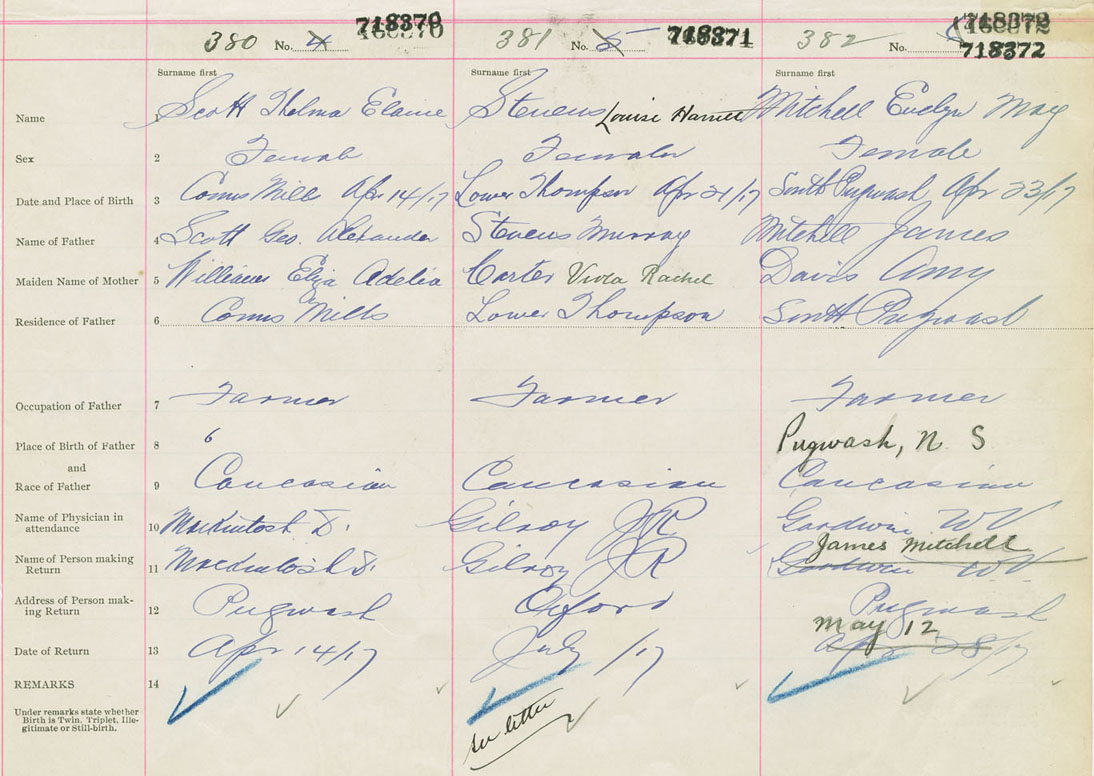 718370 718371 718372
380 No. 4 381 No. 5 382 No.
718372
Surname first Surname first Surname first
Name 1 Scott Thelma Elaine Stevens Louise Harriett Mitchell Evelyn May
Sex 2 Female Female Female
Date and Place of Birth 3 Conns Mills Apr 14/17 Lower Thompson Apr 21/17 South Pugwash Apr 23/17
Name of Father 4 Scott Geo. Alexander Stevens Murray Mitchell James
Maiden Name of Mother 5 Williams Eliza Adelia Carter Viola Rachel Davis Amy
Residence of Father 6 Conns Mills Lower Thompson South Pugwash
Occupation of Father 7 Farmer Farmer Farmer
Place of Birth of Father 8 6 Pugwash, N. S
and
Race of Father 9 Caucasian Caucasian Caucasian
Name of Physician in
attendance 10 MacKintosh D. Gilroy JR Goodwin W V
James Mitchell
Name of Person making
Return 11 MacKintosh D. Gilroy JR Goodwin W. V
Address of Person mak-
ing Return 12 Pugwash Oxford Pugwash
May 12
Date of Return 13 Apr 14/17 July /17 Apr 28/17
REMARKS 14
Under remarks state whether
Birth is Twin. Triplet, Ille-
gitimate or Still-birth.
see letter